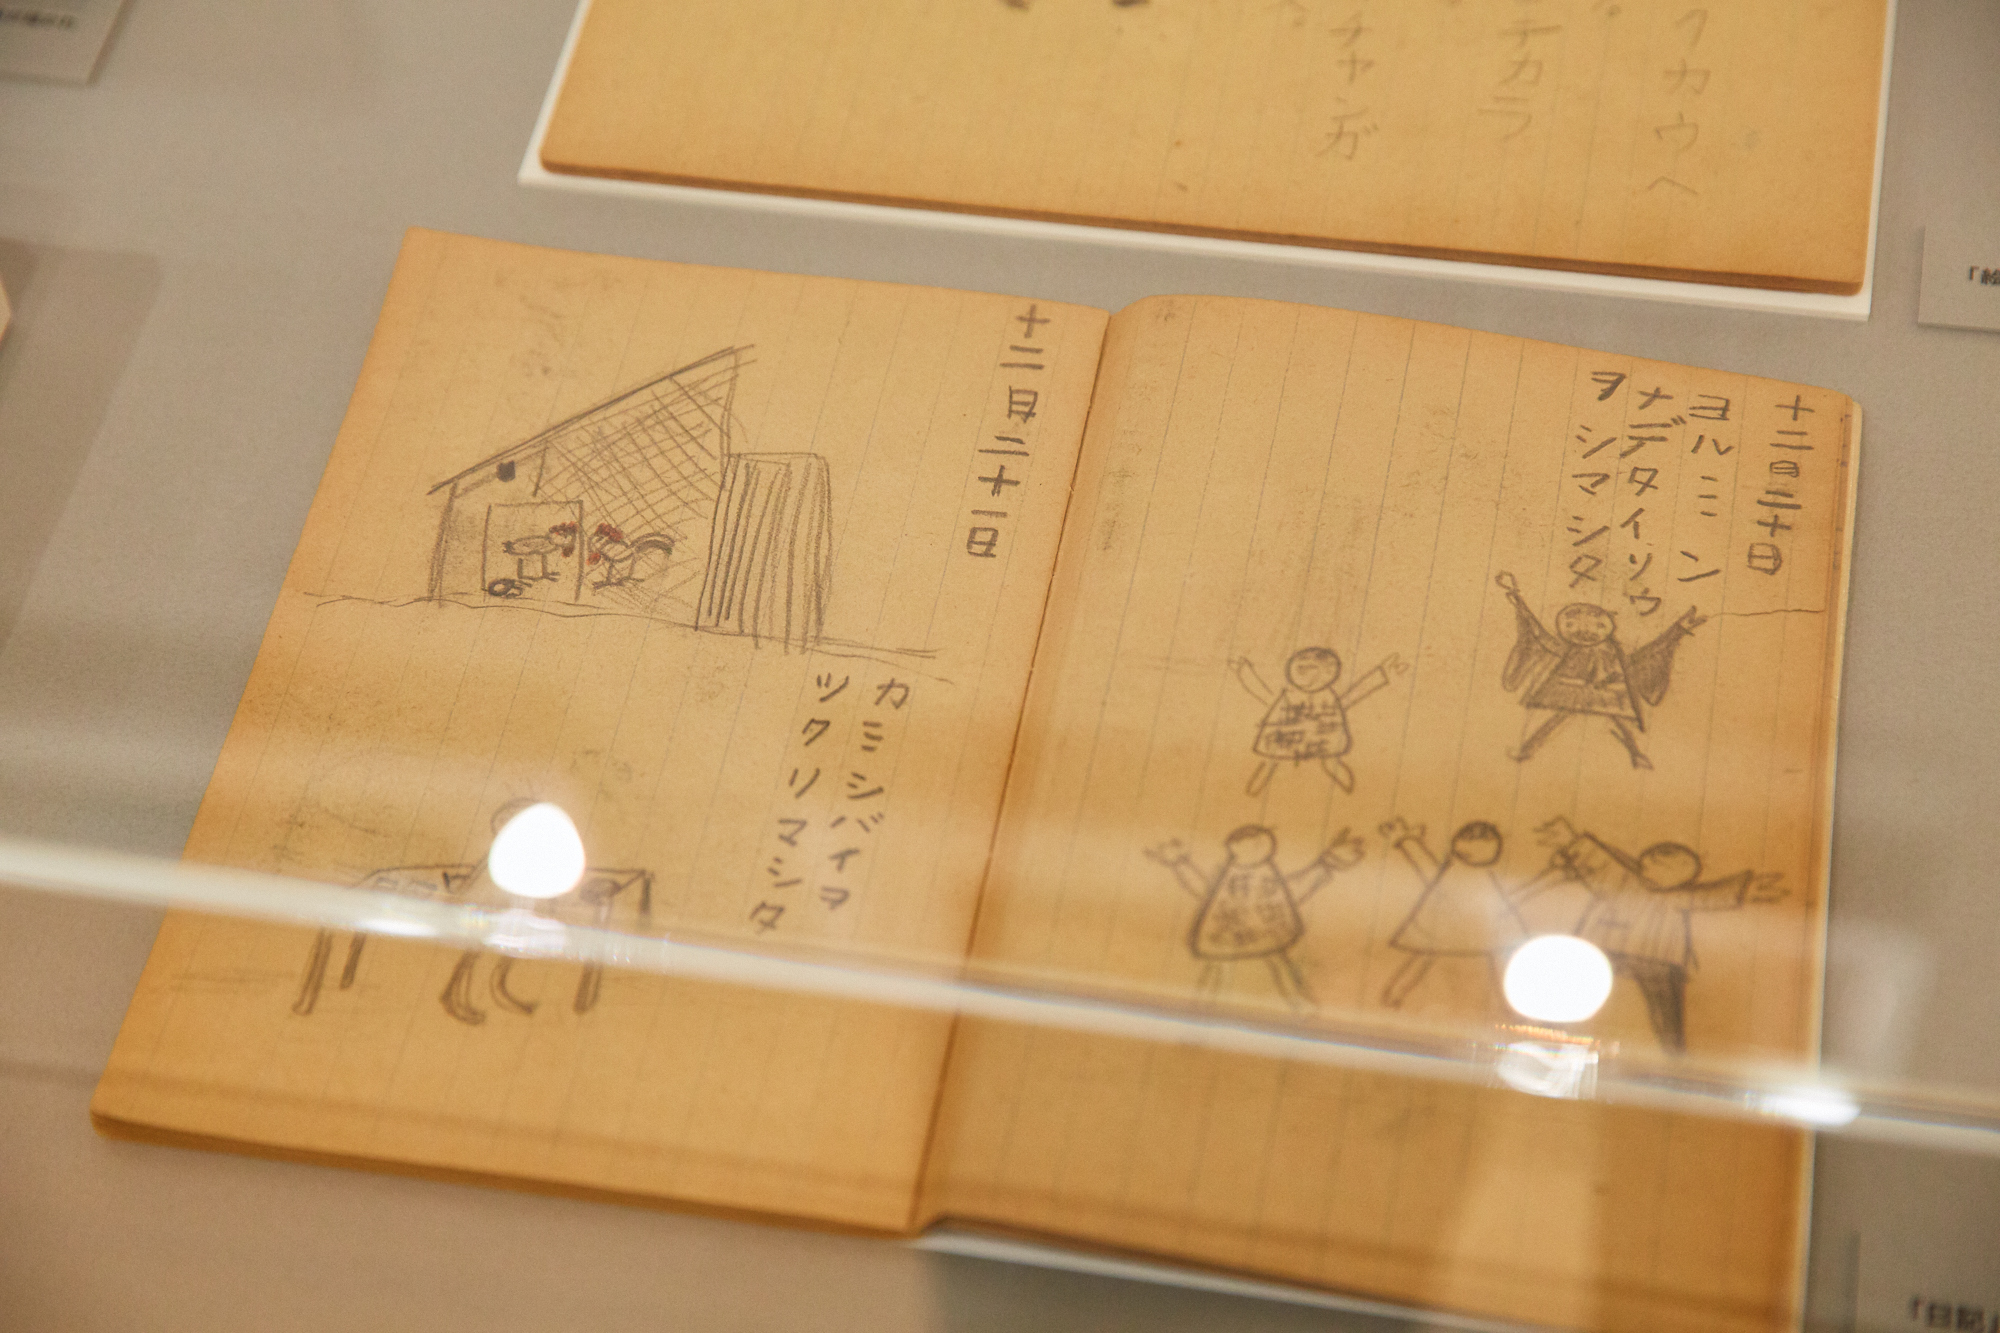 クカウヘ
チカラ
チャンガ
十二月二十日
ヨルミン
ナデタイソウ
ヲシマシタ
十二月二十一日
カミシバイヲ
ツクリマシタ
「絵
「日記